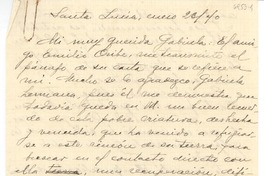 Santa Lucía, enero 23/40
Mi muy querida Gabriela: El ami-
go Emilio Oribe me transmite el
párrafo de su carta que se refiere a
mí. Mucho se lo agradezco, Gabriela
hermana, pues él me demuestra que
todavía queda en M. un buen recuer-
do de esta pobre criatura, deshecha
y vencida, que ha venido a refugiar-
se a este rincón de su tierra, para
buscar en el contacto directo con
ella, una recuperación, difí-